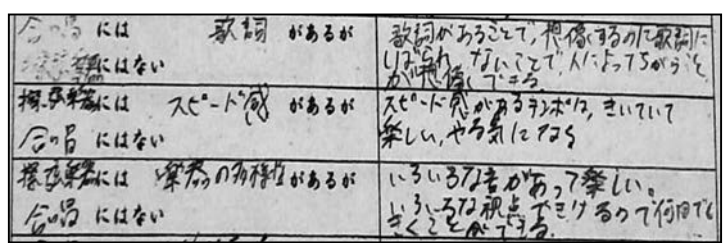 合唱 には 歌詞 があるが
撥弦楽器にはない
歌詞があることで、想像するのに歌詞に
しばられ、ないことで、人によってちがうこと
が想像できる。
撥弦楽器には スピード感 があるが
合唱 にはない
スピード感があるテンポは、きいていて
楽しい、やる気になる
撥弦楽器には 楽器の多様性があるが
合唱 にはない
いろいろな音があって楽しい。
いろいろな視点できけるので何回でも
きくことができる。